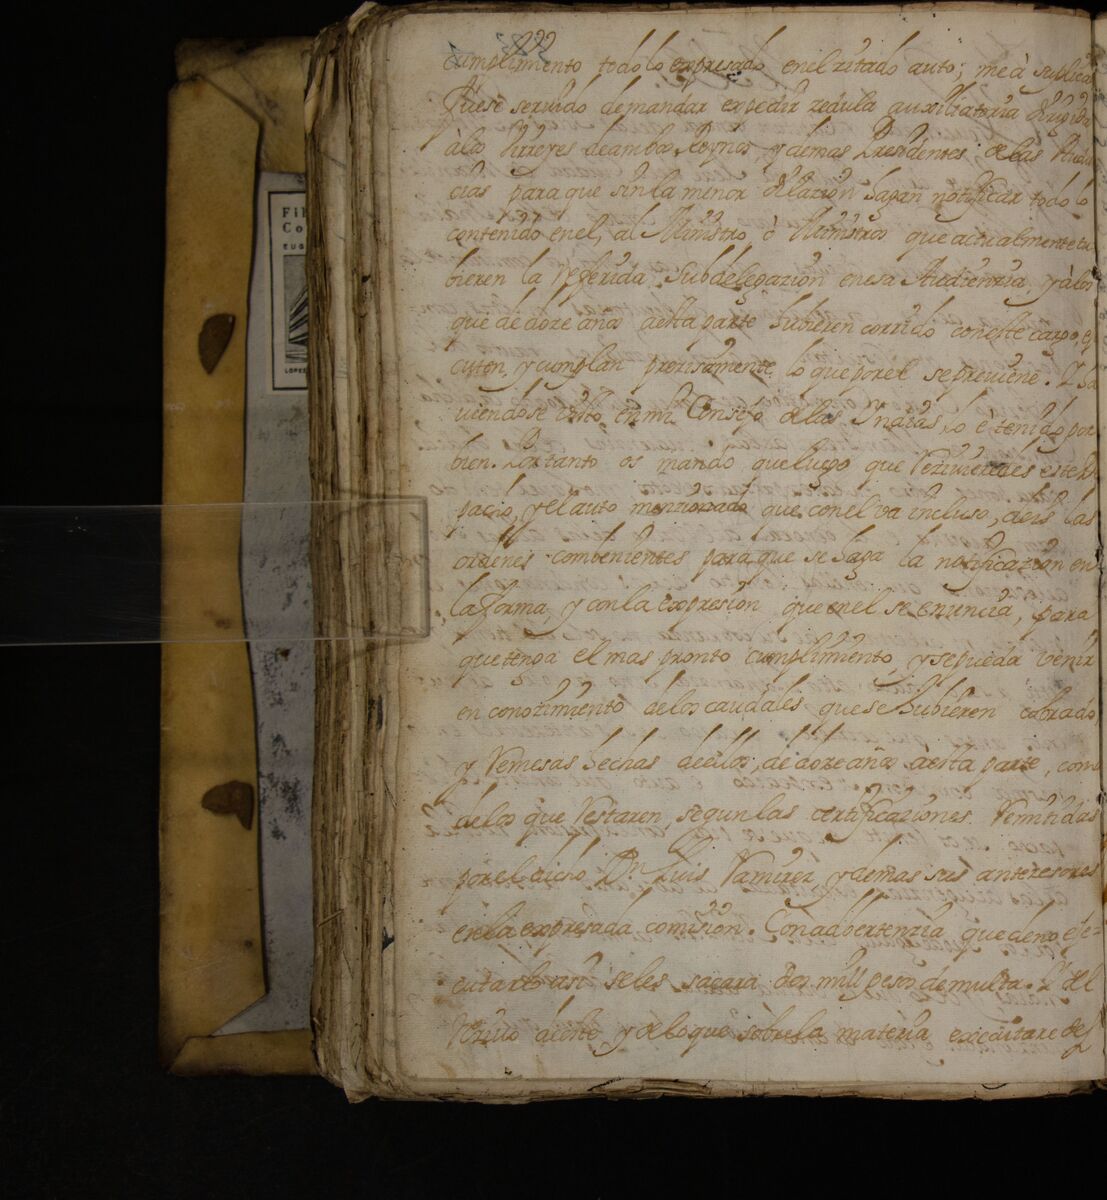 cumplimento todo lo expresado enel zitado auto; me à suplica
fuese servido demandar expedir zedula auxiliatoria
àlos Virreyes deambos Reynos y demas Presidentes delas Audi
cias para que sin la menor dilazion hagan notificar todo lo
contenido enel, al Ministro ò Ministros que actualmente tu
bieren la referida Subdelegazion enesa Audienzia, yàlos
que de doze años aesta parte hubieren corrido con este cargo, eje
cuten, y cumplan prezisamente lo que por el se previene. Y ha
viendose visto en mi Consejo delas Indias, lo è tenido por
bien. Por tanto os mando que luego que rezivieredes este des
pacho, y el auto menzionado que con el va incluso, deis las
ordenes combenientes para que se haga la notificazion en
la forma, y con la expresion que enel se enuncia, para
que tenga el mas pronto cumplimiento, y se pueda venir
en conozimiento delos caudales que se hubieren cobrado
y remesas hechas dellos, de doze años aesta parte, como
delos que restaren segun las certificaziones remitidas
por el dicho Dn Luis Ramirez y demas sus antezesores
en la expresada comision. Con adbertenzia que de no eje=
cutarlo asi seles sacara dos mill pesos de multa. Y del
rezivo deeste y delo que sobre la materia executare des
Fib
Co
EUG
LOPE